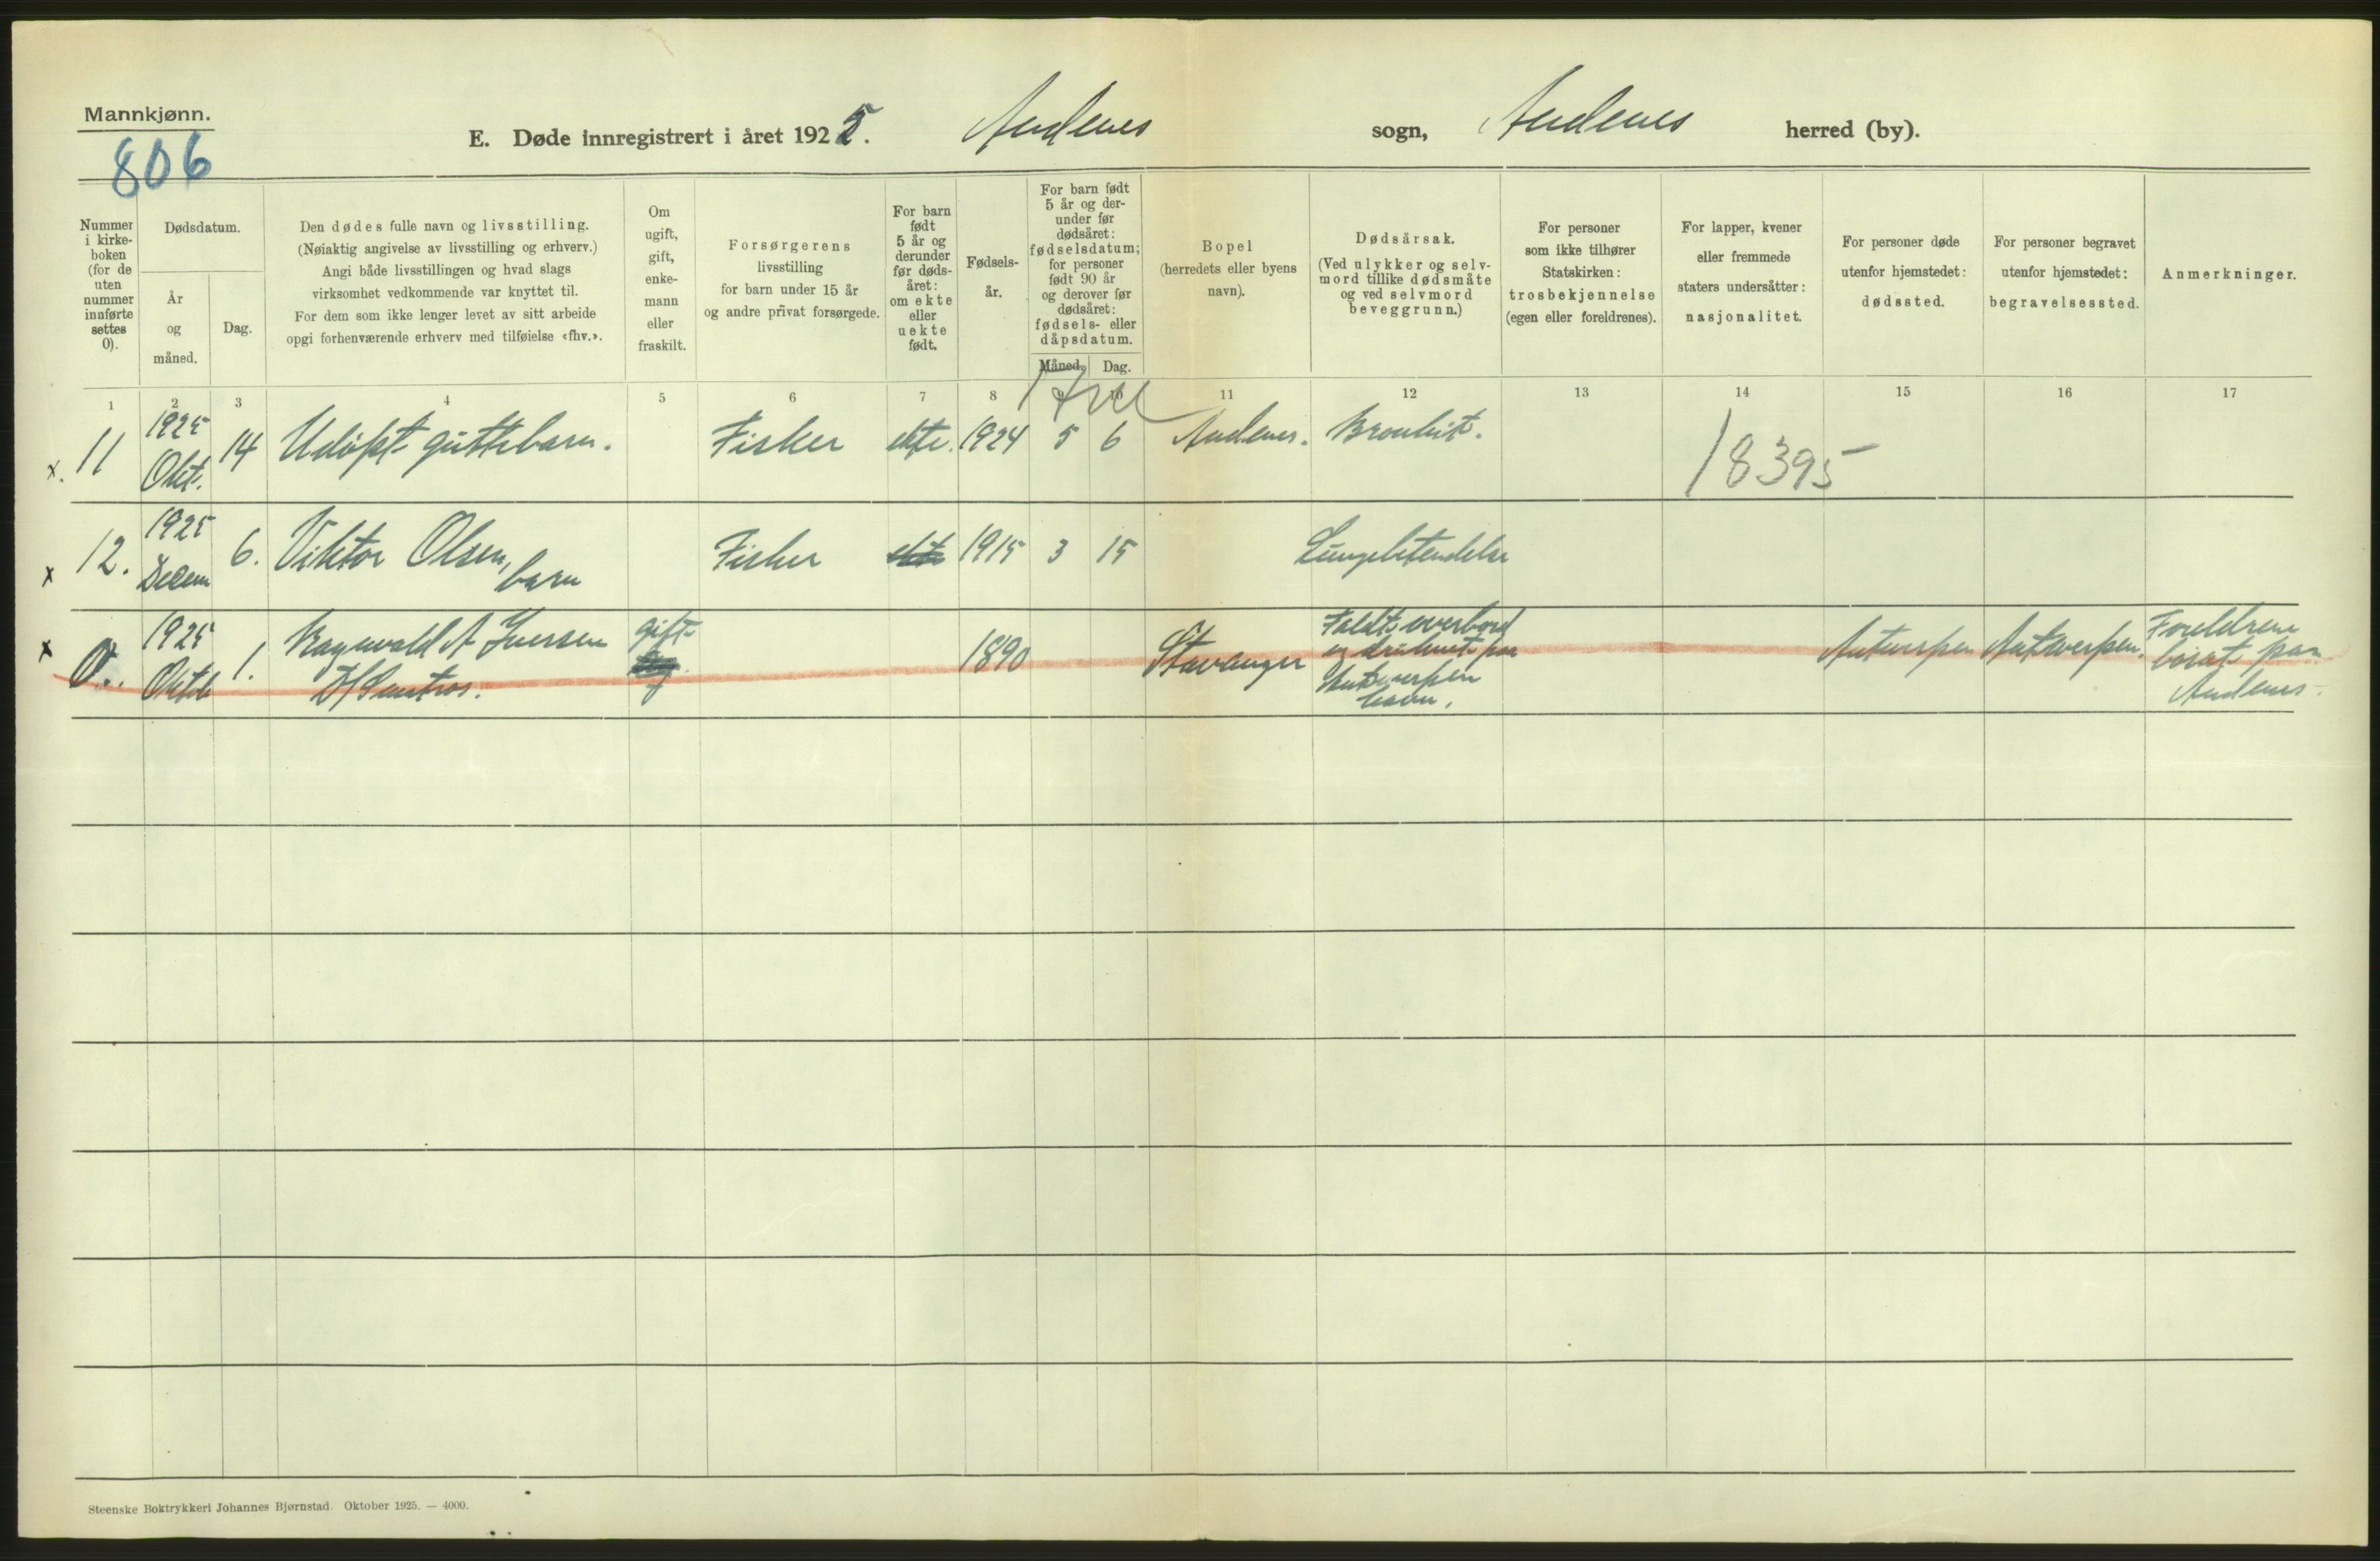 Mannkjønn.
806
E. Døde innregistrert i året 1925. Andenes sogn, Andenes herred (by).
Nummer i kirke-boken (for de uten nummer innførte settes 0).
Dødsdatum.
År og måned.
Dag.
Den dødes fulle navn og livsstilling.
(Nøiaktig angivelse av livsstilling og erhverv.)
Angi både livsstillingen og hvad slags
virksomhet vedkommende var knyttet til.
For dem som ikke lenger levet av sitt arbeide
opgi forhenværende erhverv med tilføielse «fhv.».
Om ugift, gift, enke-mann eller fraskilt.
Forsørgerens
livsstilling
for barn under 15 år
og andre privat forsørgede.
For barn født 5 år og derunder før døds-året: om ekte eller uekte født.
Fødsels-år.
For barn født 5 år og der-under før dødsåret: fødselsdatum; for personer født 90 år og derover før dødsåret: fødsels- eller dåpsdatum.
Måned. Dag.
Bopel
(herredets eller byens
navn).
Dødsårsak.
(Ved ulykker og selv-
mord tillike dødsmåte
og ved selvmord
beveggrunn.)
For personer
som ikke tilhører
Statskirken:
trosbekjennelse
(egen eller foreldrenes).
For lapper, kvener
eller fremmede
staters undersåtter:
nasjonalitet.
For personer døde
utenfor hjemstedet:
dødssted.
For personer begravet
utenfor hjemstedet:
begravelsessted.
Anmerkninger.
1 2 3 4 5 6 7 8 9 10 11 12 13 14 15 16 17
x. 11 1925 Okt. 14 Udøpt guttebarn. Fisker ekte. 1924 5 6 Andenes. Bronkit.
18395
x 12. 1925 Decem 6. Viktor Olsen, barn Fisker ekte 1915 3 15 Lungebetendelse
x 0. 1925 Oktb 1. Ragnvald A Iversen gift 1890 Stavanger Faldt overbord og druknet paa Antwerpen havn. Antwerpen Antwerpen. Foreldrene bosat paa Andenes.
Steenske Boktrykkeri Johannes Bjørnstad. Oktober 1925. — 4000.